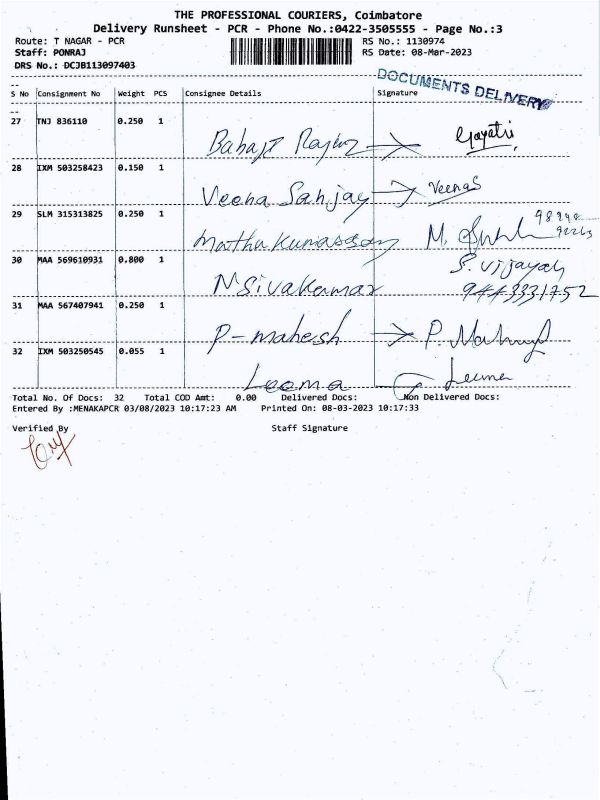 THE PROFESSIONAL COURIERS, Coimbatore
Delivery Runsheet - PCR - Phone No.:0422-3505555 - Page No.:3
Route: T NAGAR - PCR
RS No.: 1130974
Staff: PONRAJ
RS Date: 08-Mar-2023
DRS No.: DCJB113097403
DOCUMENTS DELIVERY
S No Consignment No Weight PCS Consignee Details Signature
27 TNJ 836110 0.250 1
Gayatri
28 IXM 503258423 0.150 1
Veena Sanjay Veenas
29 SLM 315313825 0.250 1
Muthukumarasamy M.
30 MAA 569610931 0.800 1
S. Vijayah
N Sivakumar 9443331752
31 MAA 567407941 0.250 1
P-mahesh P. Mahesh
32 IXM 503250545 0.055 1
Leema Leema
Total No. Of Docs: 32 Total COD Amt: 0.00 Delivered Docs: Non Delivered Docs:
Entered By :MENAKAPCR 03/08/2023 10:17:23 AM Printed On: 08-03-2023 10:17:33
Verified By Staff Signature